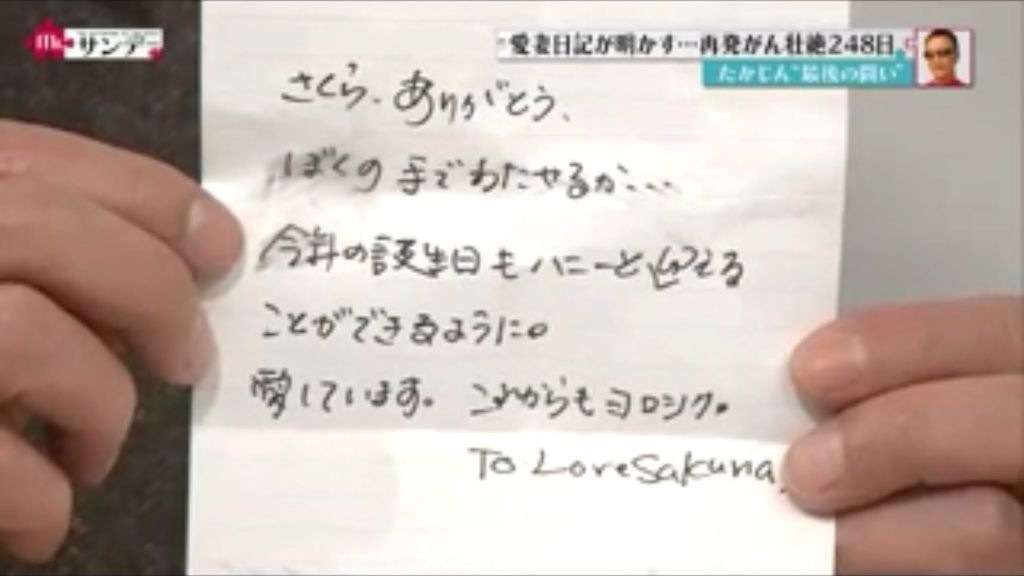 Mr.サンデー
愛妻日記が明かす…再発がん壮絶248日
たかじん"最後の闘い"
さくら、ありがとう、
ぼくの手でわたせるか…
今年の誕生日もハニーと迎える
ことができるように。
愛しています。これからもヨロシク。
To Love Sakura